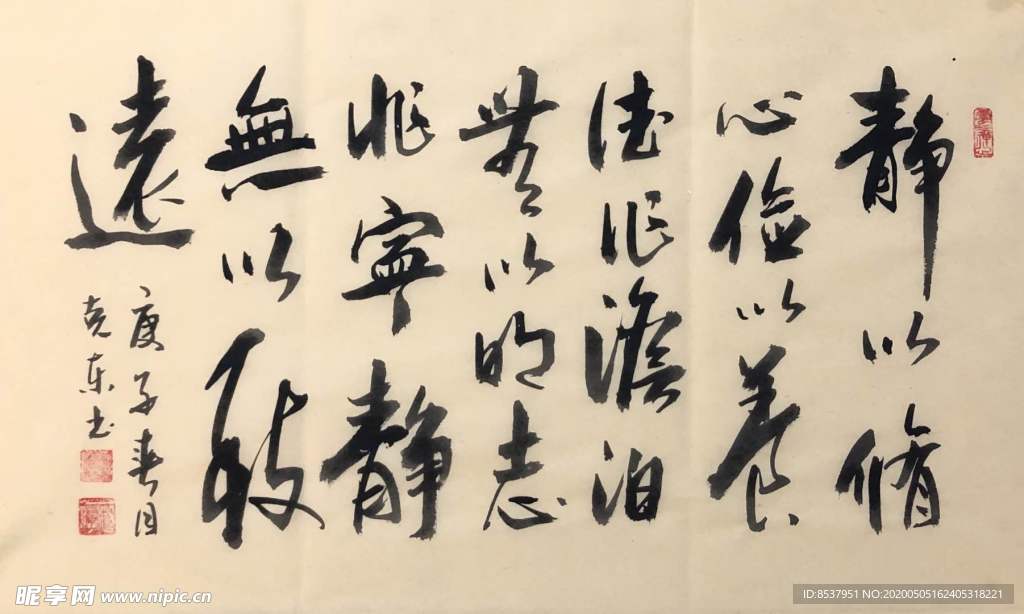 靜以脩
心儉以養
德非澹泊
無以明志
非寧靜
無以致
遠
庚子春月
克東书
昵享网 www.nipic.cn
ID:8537951 NO:20200505162405318221